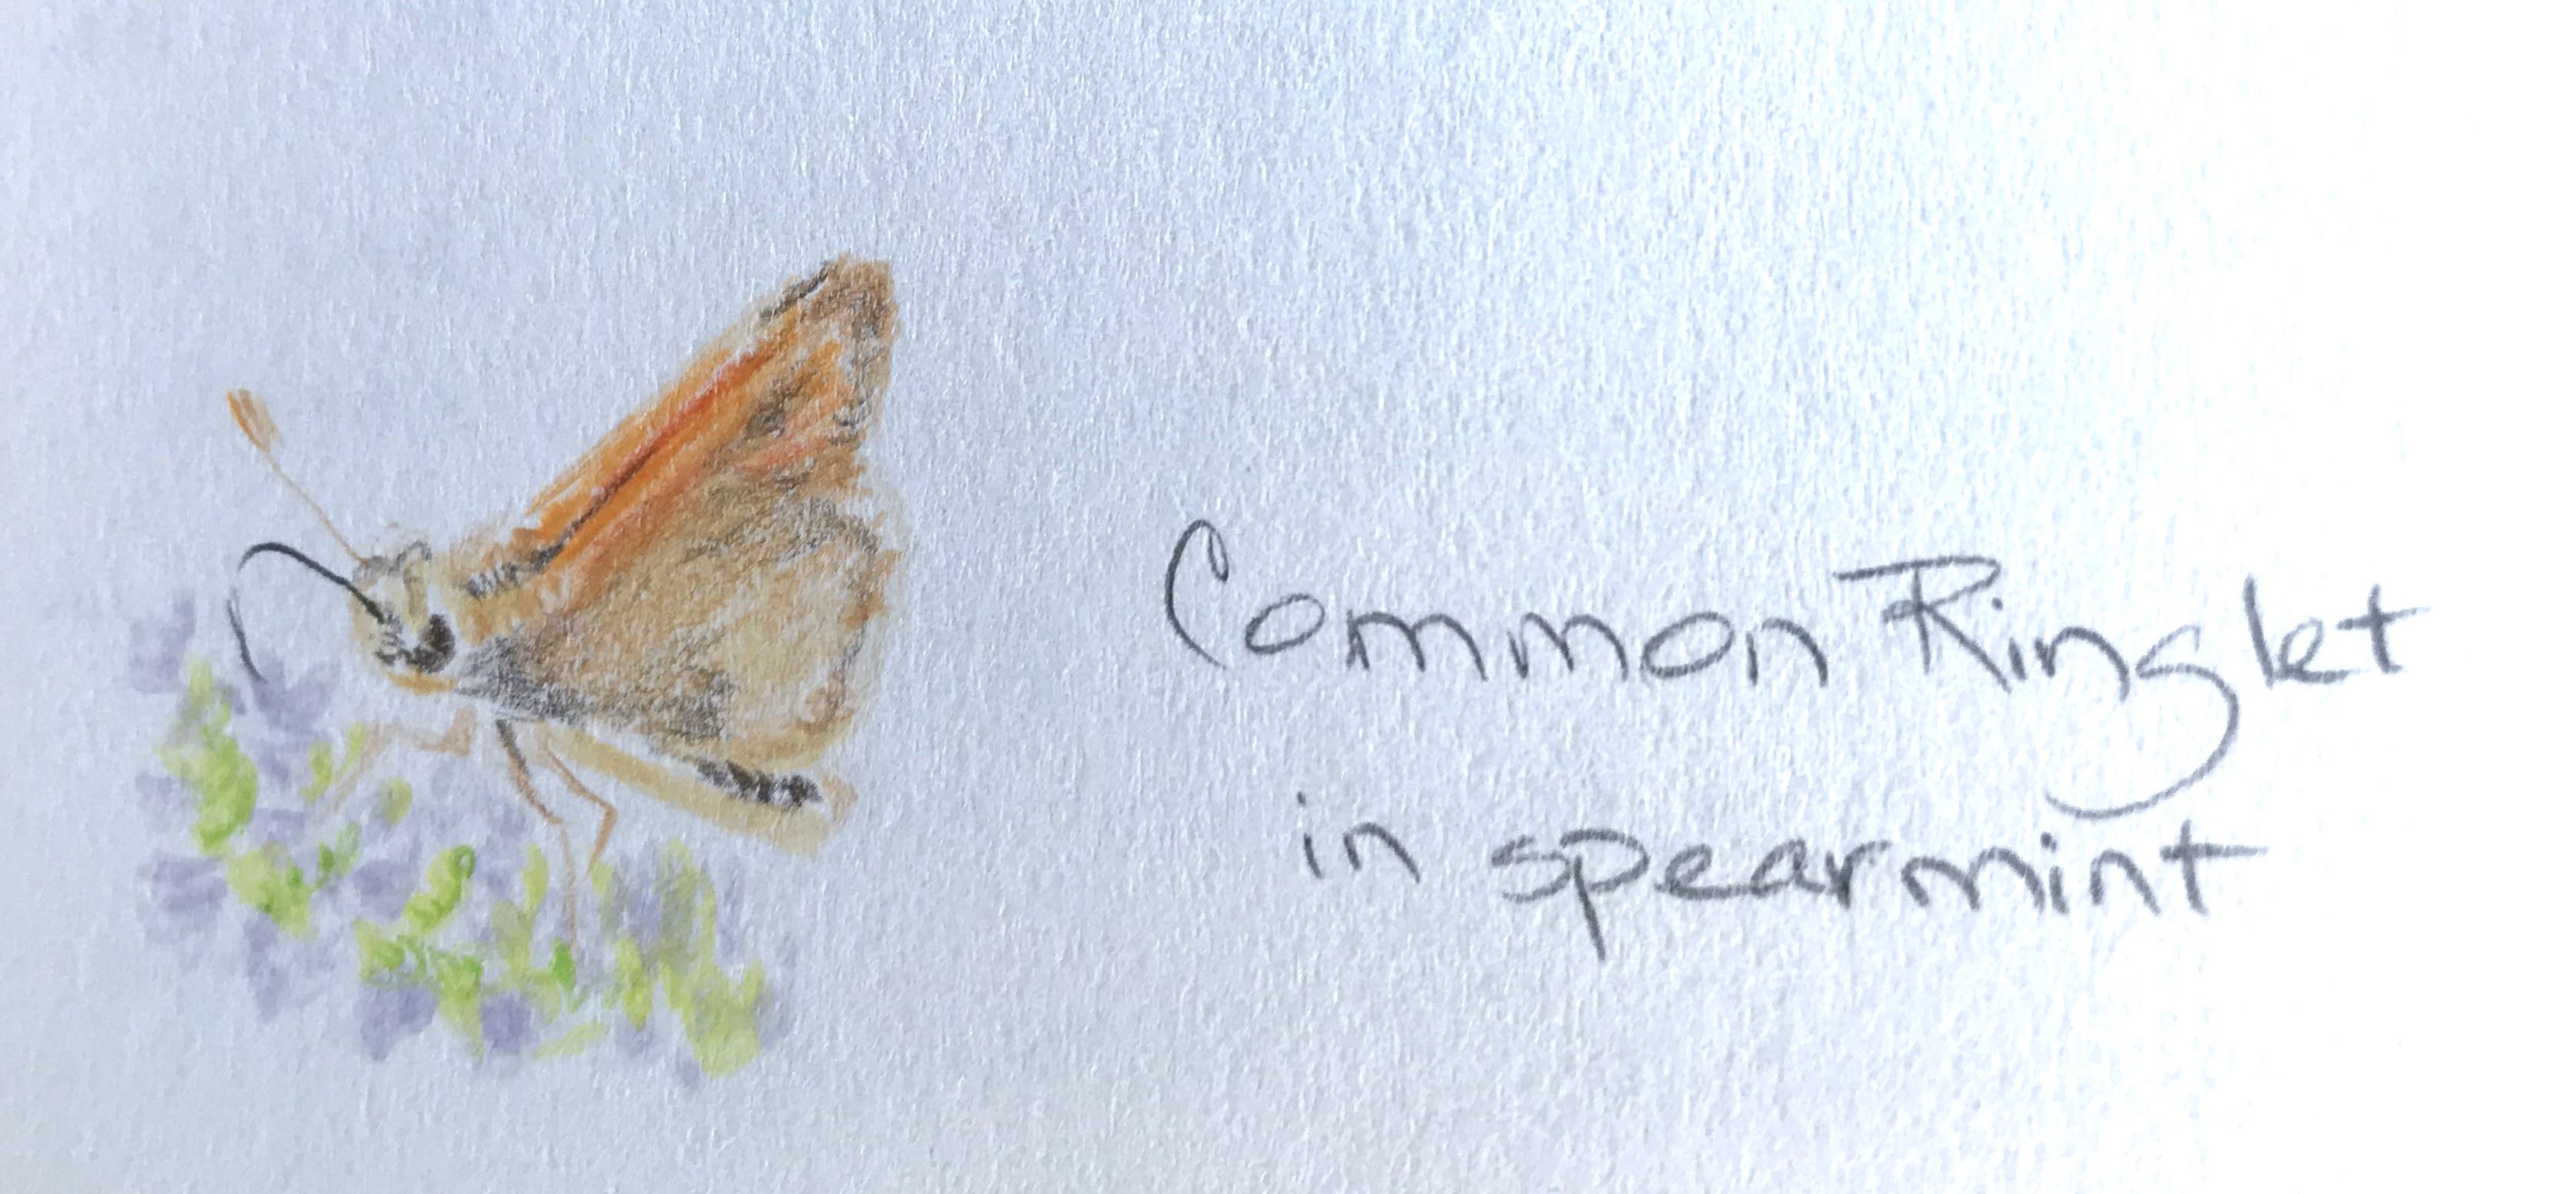 Common Ringlet
in spearmint